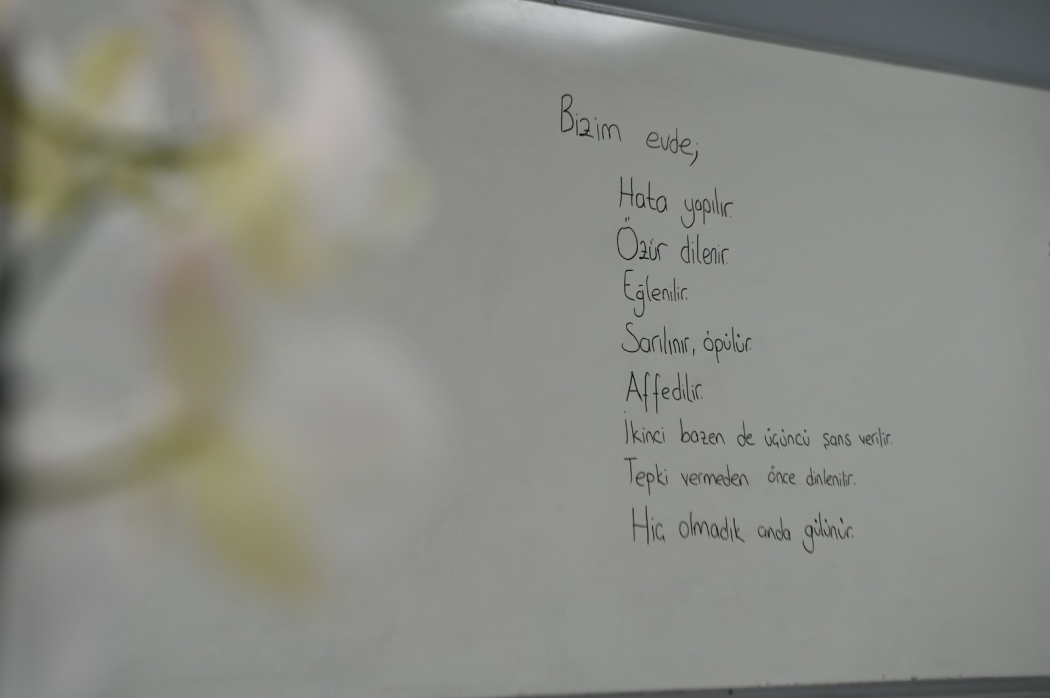 Bizim evde;
Hata yapılır.
Özür dilenir.
Eğlenilir.
Sarılınır, öpülür.
Affedilir.
İkinci bazen de üçüncü şans verilir.
Tepki vermeden önce dinlenilir.
Hiç olmadık anda gülünür.